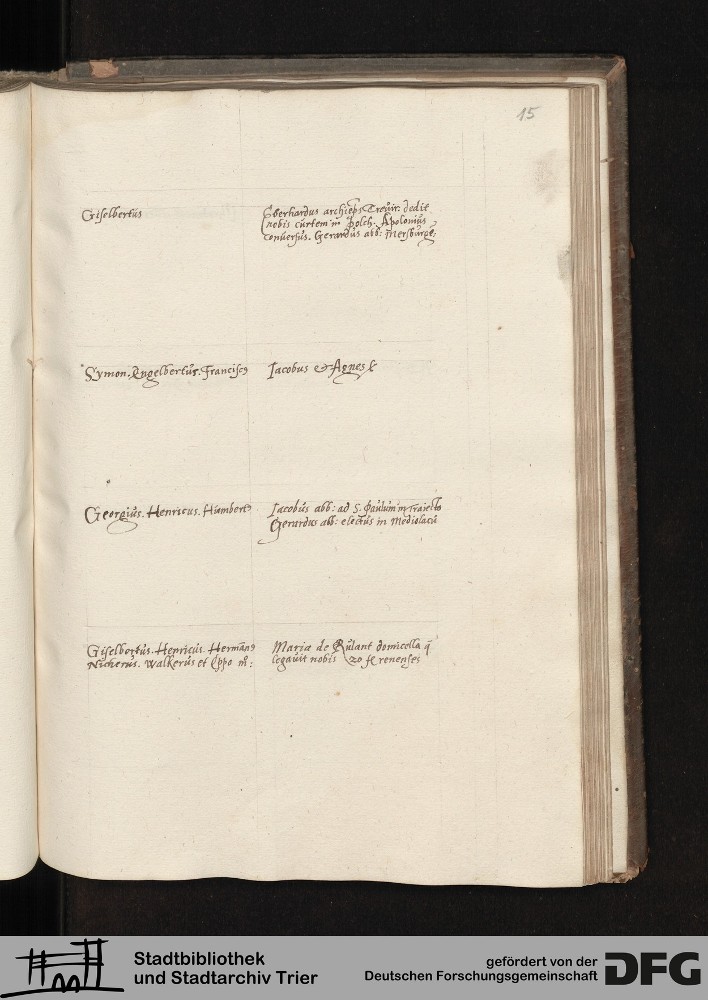 15
Giselbertus
Eberhardus archieps Trevir: dedit
nobis curtem in Polch. Apolonius
conversus. Gerardus abb: Mersburge:
Symon. Engelbertus. Franciscus
Jacobus et Agnes
Georgius. Henricus. Humbertus
Jacobus abb: ad S. Paulum in Traiecto
Gerardus abb: electus in Mediolacu
Giselbertus. Henricus. Hermanus
Nicherus. Walkerus et Eppo m:
Maria de Rulant domicella q̄
legavit nobis 20 fl renenses
Stadtbibliothek
und Stadtarchiv Trier
gefördert von der
Deutschen Forschungsgemeinschaft
DFG